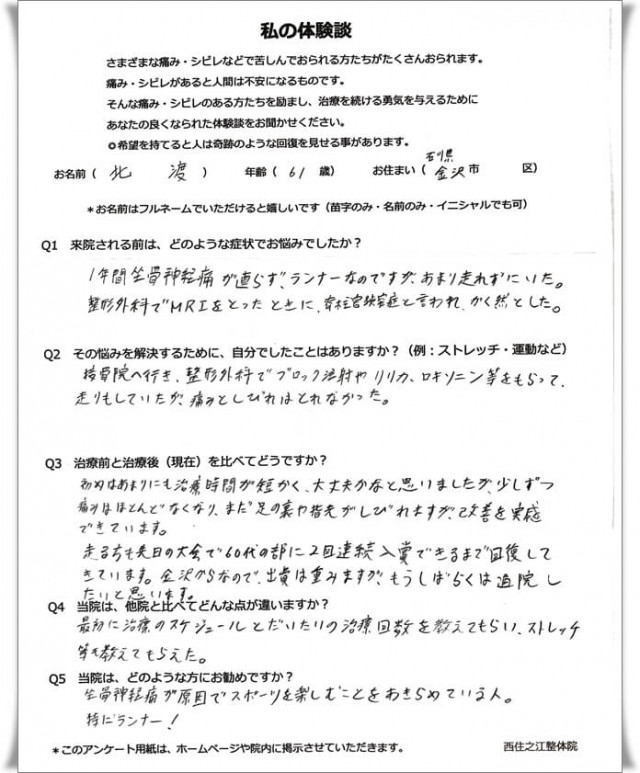 私の体験談
さまざまな痛み・シビレなどで苦しんでおられる方たちがたくさんおられます。
痛み・シビレがあると人間は不安になるものです。
そんな痛み・シビレのある方たちを励まし、治療を続ける勇気を与えるために
あなたの良くなられた体験談をお聞かせください。
◎希望を持てると人は奇跡のような回復を見せる事があります。
お名前（ 北 渡 ） 年齢（ 61 歳） お住まい（ 石川県 金沢市 区）
＊お名前はフルネームでいただけると嬉しいです（苗字のみ・名前のみ・イニシャルでも可）
Q1 来院される前は、どのような症状でお悩みでしたか？
1年間坐骨神経痛が直らず、ランナーなのですが、あまり走れずにいた。
整形外科でMRIをとったときに、脊柱管狭窄と言われ、がく然とした。
Q2 その悩みを解決するために、自分でしたことはありますか？（例：ストレッチ・運動など）
接骨院へ行き、整形外科でブロック注射やリリカ、ロキソニン等をもらって、
走りもしていたが、痛みとしびれはとれなかった。
Q3 治療前と治療後（現在）を比べてどうですか？
初めはあまりにも治療時間が短かく、大丈夫かなと思いましたが、少しずつ
痛みはほとんどなくなり、まだ足の裏や指先がしびれますが、改善を実感
できています。
走る方も先日の大会で60代の部に2回連続入賞できるまで回復して
きています。金沢からなので、出費は重みますが、もうしばらくは通院し
たいと思います。
Q4 当院は、他院と比べてどんな点が違いますか？
最初に治療のスケジュールとだいたいの治療回数を教えてもらい、ストレッチ
等も教えてもらえた。
Q5 当院は、どのような方にお勧めですか？
坐骨神経痛が原因でスポーツを楽しむことをあきらめている人。
特にランナー！
＊このアンケート用紙は、ホームページや院内に掲示させていただきます。 西住之江整体院